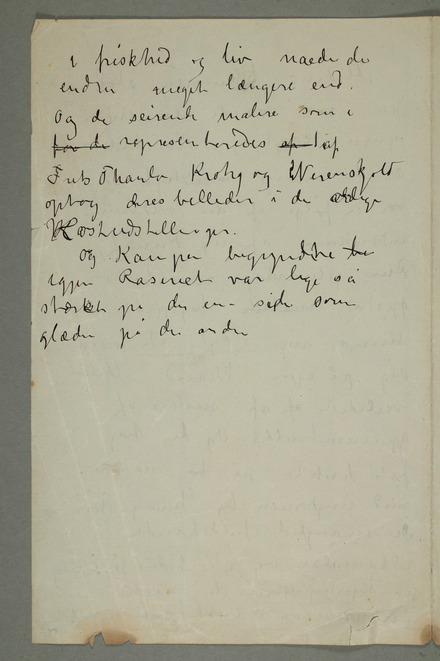 i friskhed og liv naaede de
endnu meget længere end.
Og de seirende malere som i
for de representeredes af
Frits Thaulow Krohg og Werenskjold
optog deres billeder i de årlige
Høstudstillinger.
Og Kampen begyndte
igjen Raseriet var lige så
stærkt på den ene side som
glæden på den anden